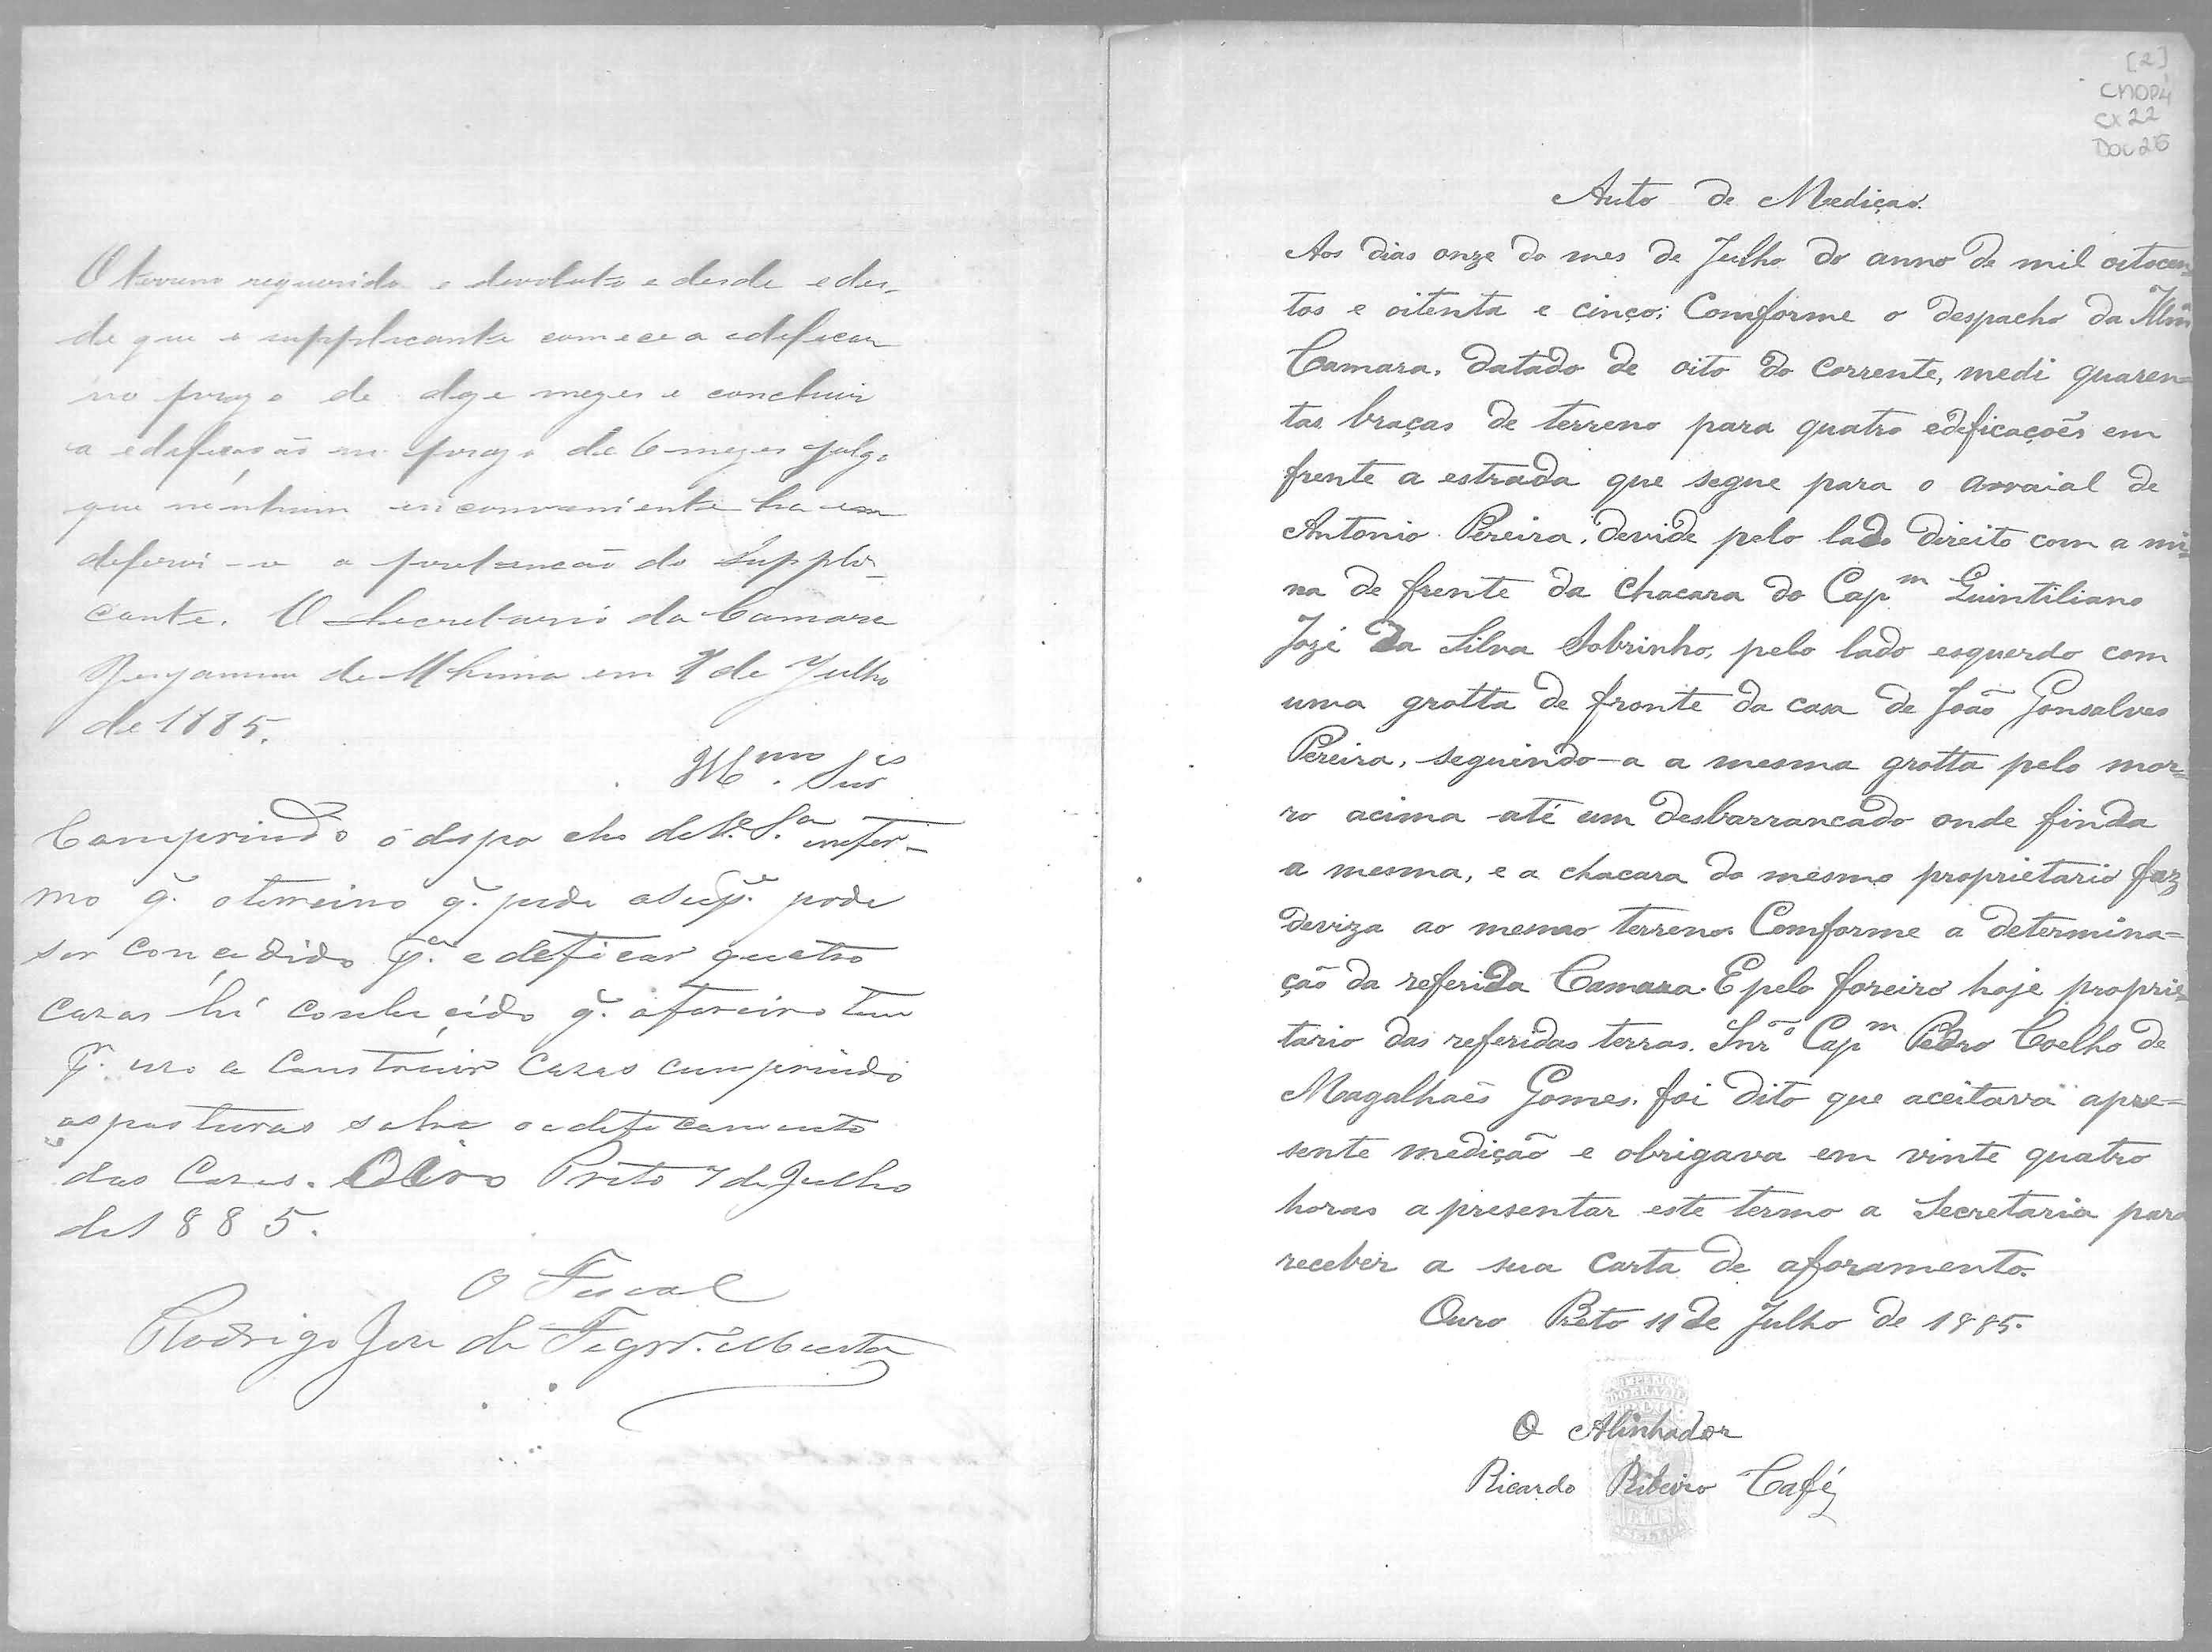 O terreno requerido e devoluto e desde e des-
de que o supplicante comece a edeficar
no prazo de doze mezes e concluir
a edeficação no prazo de 6 mezes julgo
que nenhum inconveniente ha em
deferir-se a pretenção do Suppli-
cante. O Secretario da Camara
de Lima em 7 de Julho
de 1885.
Illmo. Snres
Comprindo o despacho de V.as S.as infor-
mo q. o terreino q. pede o Sup.e pode
ser concedido p.a edeficar quatro
cazas hi conhecido q. o foreiro tem
p.r uzo a Construir Cazas cumprindo
as posturas sobre o edeficamento
das Cazas. Ouro Preto 7 de Julho
de 1885.
O Fiscal
Rodrigo Jose de Figrd.o Murta
[2]
CMOP4
CX 22
DOC 26
Auto de Medição.
Aos dias onze do mes de Julho do anno de mil oitocen=
tos e oitenta e cinco; Comforme o despacho da Illmã
Camara, datado de oito do corrente, medi quaren=
tas braças de terreno para quatro edeficações em
frente a estrada que segue para o arraial de
Antonio Pereira, devide pelo lado direito com a mi=
na de frente da chacara do Cap.m Quintiliano
Jozé da Silva Sobrinho, pelo lado esquerdo com
uma grotta de fronte da casa de João Gonsalves
Pereira, seguindo-a a mesma grotta pelo mor=
ro acima até um desbarrancado onde finda
a mesma, e a chacara do mesmo proprietario faz
deviza ao mesmo terreno. Comforme a determina=
ção da referida Camara. E pelo foreiro hoje proprie=
tario das referidas terras. Snr.o Cap.m Pedro Coelho de
Magalhaẽs Gomes. foi dito que aceitava apre=
sente medição e obrigava em vinte quatro
horas apresentar este termo a Secretaria para
receber a sua Carta de aforamento.
Ouro Preto 11 de Julho de 1885.
IMPERIO
DO BRAZIL
O Alinhador
Ricardo Ribeiro Café